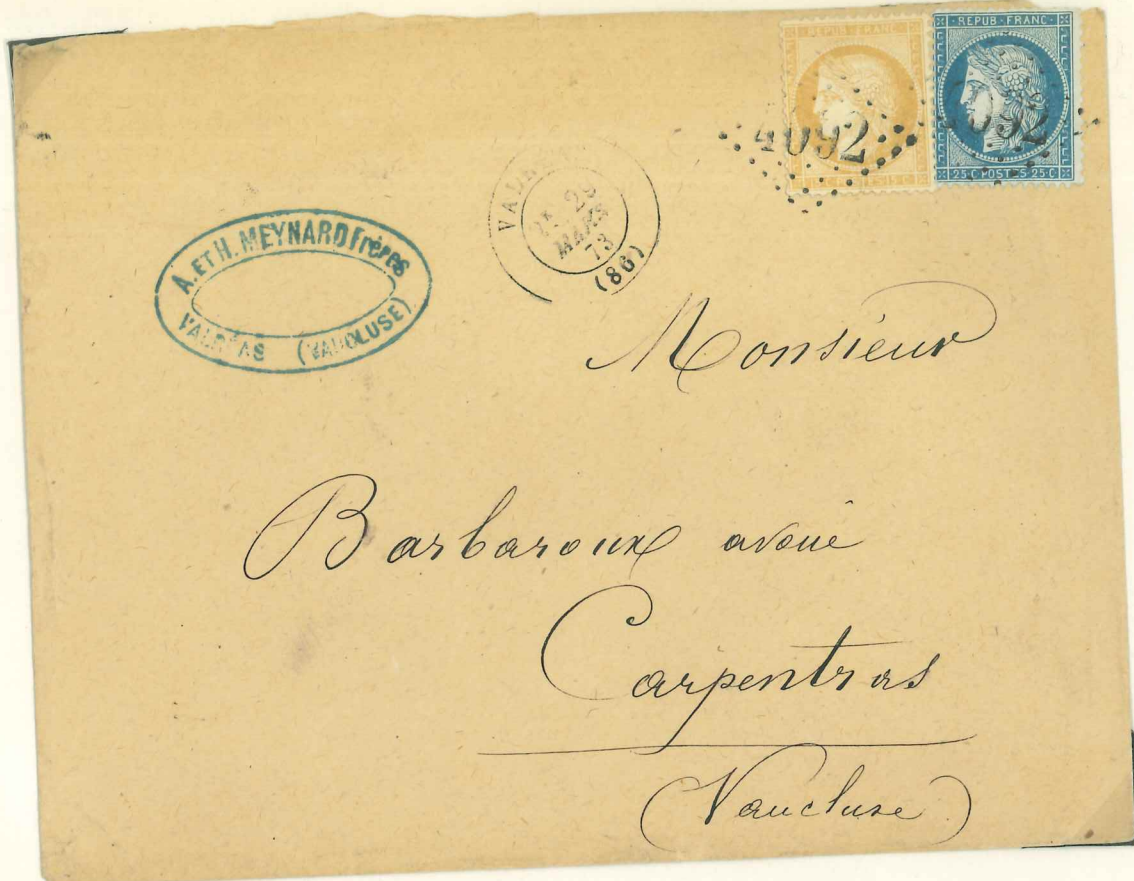 REPUB·FRANC·
·REPUB·FRANC·
4092
4092
15·C·
25·C·POSTES·25·C·
VALRÉAS
MARS
73
(86)
A. ET H. MEYNARD Frères
VALRÉAS (VAUCLUSE)
Monsieur
Barbaroux avoué
Carpentras
(Vaucluse)